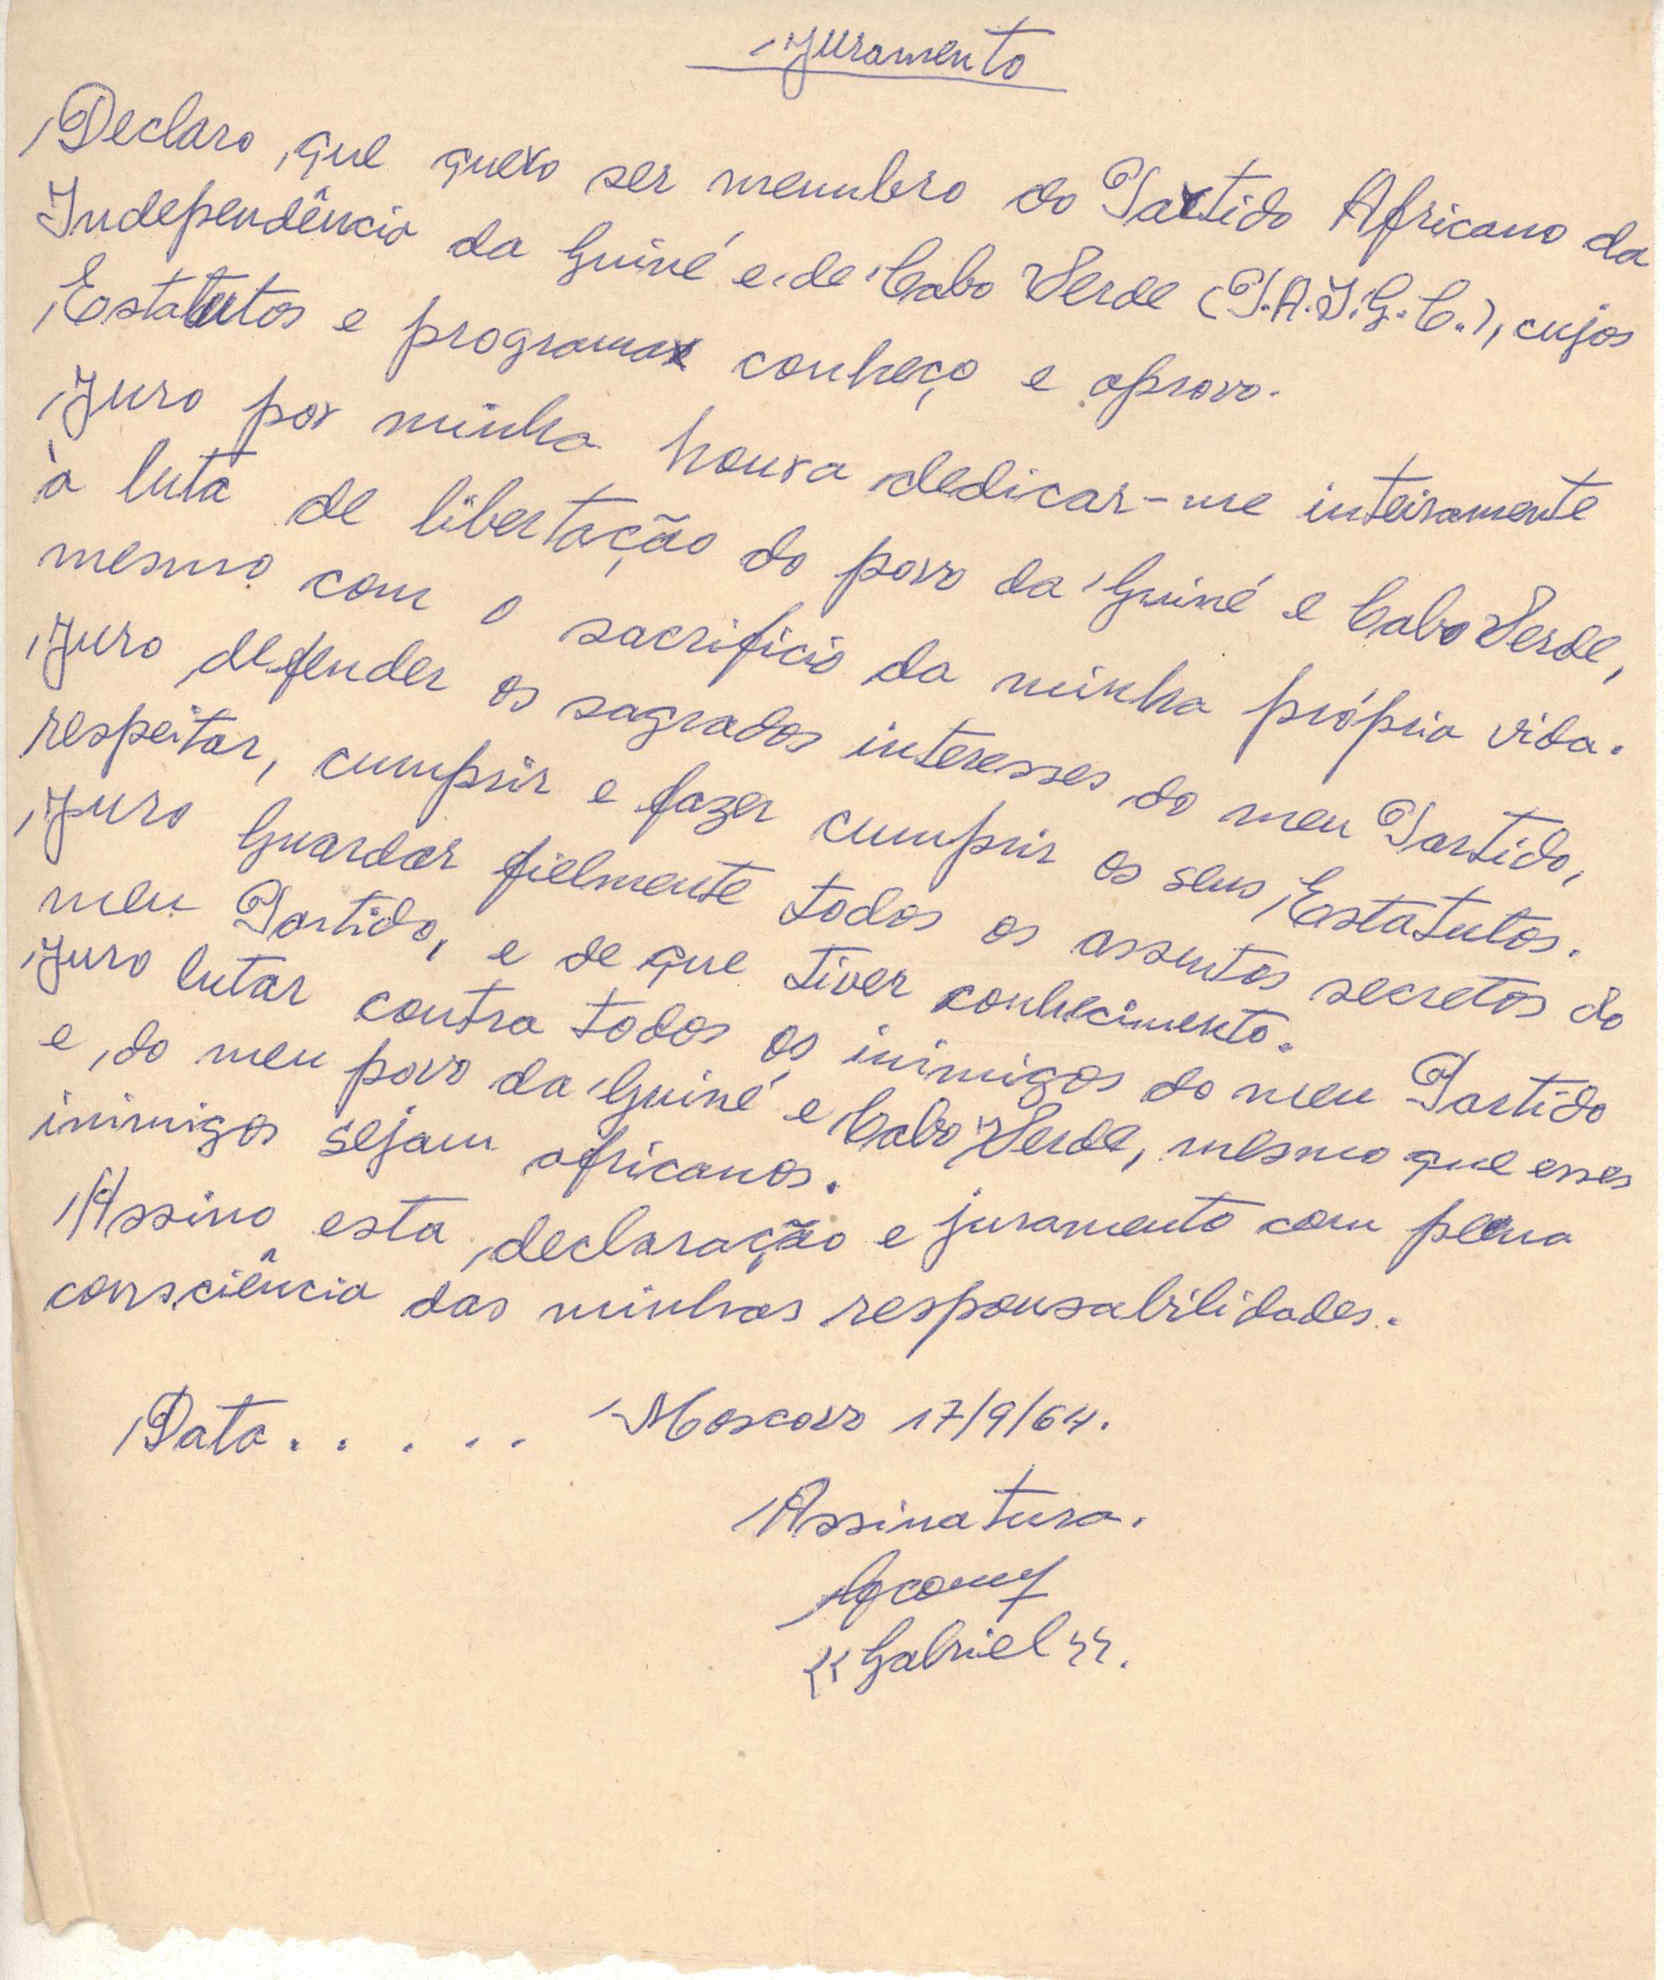 Juramento
Declaro, que quero ser membro do Partido Africano da
Independência da Guiné e de Cabo Verde (P.A.I.G.C.), cujos
Estatutos e programa conheço e aprovo.
Juro por minha honra dedicar-me inteiramente
à luta de libertação do povo da Guiné e Cabo Verde,
mesmo com o sacrifício da minha própria vida.
Juro defender os sagrados interesses do meu Partido,
respeitar, cumprir e fazer cumprir os seus Estatutos.
Juro Guardar fielmente todos os assuntos secretos do
meu Partido, e de que tiver conhecimento.
Juro lutar contra todos os inimigos do meu Partido
e do meu povo da Guiné e Cabo Verde, mesmo que esses
inimigos sejam africanos.
Assino esta declaração e juramento com plena
consciência das minhas responsabilidades.
Data..... Moscovo 17/9/64.
Assinatura.
"Gabriel".